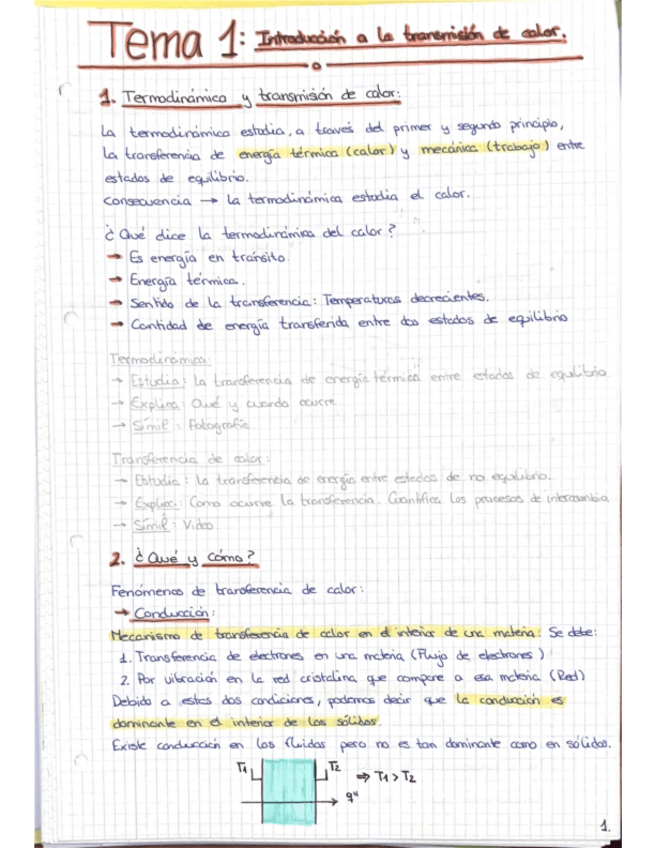 Tema 1: Introducción a la transmisión de calor.
1. Termodinámica y transmisión de calor:
La termodinámica estudia, a través del primer y segundo principio,
la transferencia de energía térmica (calor) y mecánica (trabajo) entre
estados de equilibrio.
Consecuencia → La termodinámica estudia el calor.
¿Qué dice la termodinámica del calor?
→ Es energía en tránsito.
→ Energía térmica.
→ Sentido de la transferencia: Temperaturas decrecientes.
→ Cantidad de energía transferida entre dos estados de equilibrio
Termodinámica:
→ Estudia: La transferencia de energía térmica entre estados de equilibrio
→ Explica: Qué y cuando ocurre
→ Símil: Fotografía
Transferencia de calor:
→ Estudia: La transferencia de energía entre estados de no equilibrio.
→ Explica: Como ocurre la transferencia. Cuantifica los procesos de intercambio
→ Símil: Video
2. ¿Qué y cómo?
Fenómenos de transferencia de calor:
→ Conducción:
Mecanismo de transferencia de calor en el interior de una materia. Se debe:
1. Transferencia de electrones en una materia (Flujo de electrones)
2. Por vibración en la red cristalina que compone a esa materia (Red)
Debido a estas dos condiciones, podemos decir que la conducción es
dominante en el interior de los sólidos.
Existe conducción en los fluidos pero no es tan dominante como en sólidos.
T1 T2 ⇒ T1 > T2
q"
1.